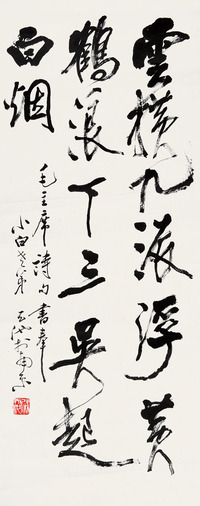 雲橫九派浮黃
鶴浪下三吴起
白烟
毛主席詩句書奉
小白老弟